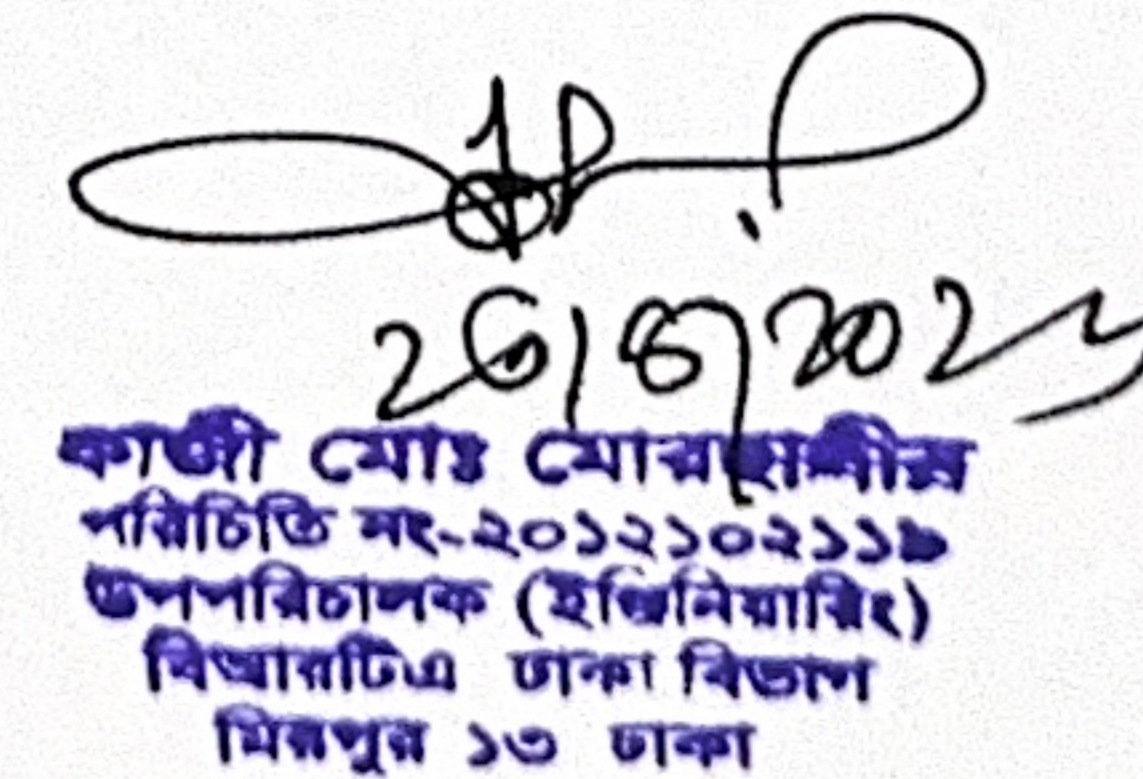 26/8/2023
কাজী মোঃ মোরছালীন
পরিচিতি নং-২০১২১০২১১৬
উপপরিচালক (ইঞ্জিনিয়ারিং)
বিআরটিএ ঢাকা বিভাগ
মিরপুর ১৩ ঢাকা